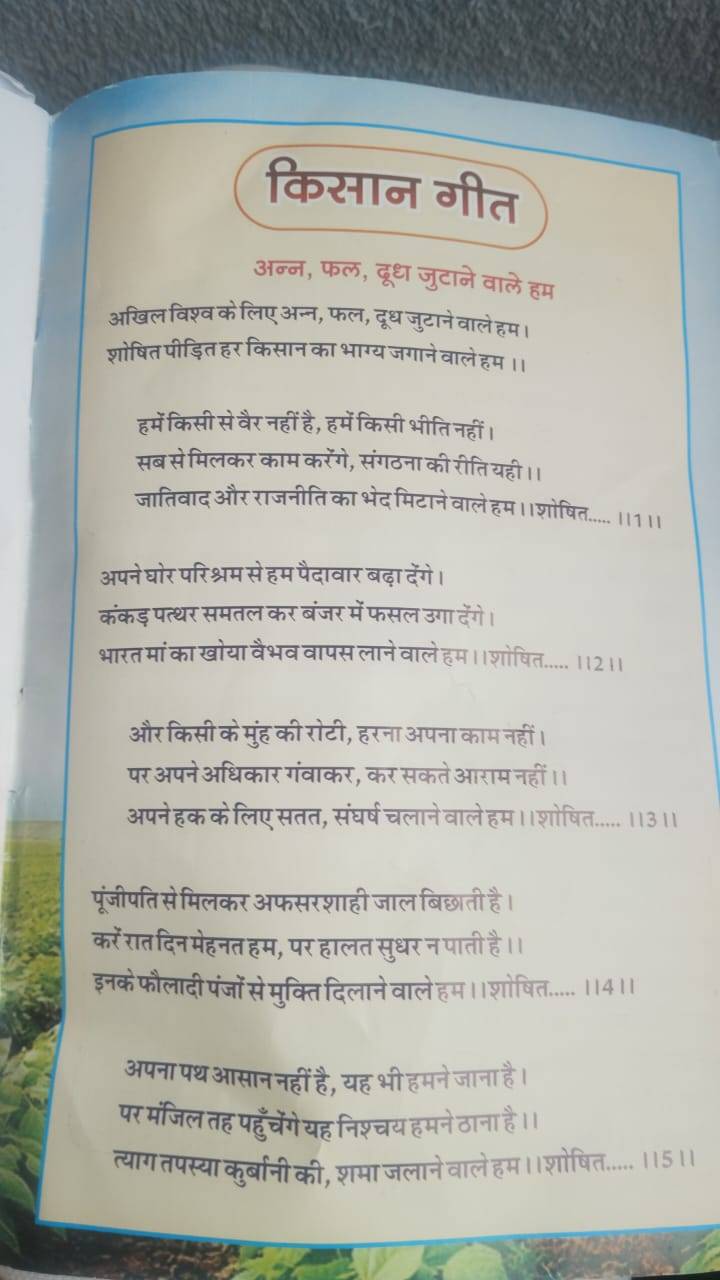 किसान गीत
अन्न, फल, दूध जुटाने वाले हम
अखिल विश्व के लिए अन्न, फल, दूध जुटाने वाले हम।
शोषित पीड़ित हर किसान का भाग्य जगाने वाले हम ।।
हमें किसी से वैर नहीं है, हमें किसी भीति नहीं।
सब से मिलकर काम करेंगे, संगठना की रीति यही।।
जातिवाद और राजनीति का भेद मिटाने वाले हम।।शोषित..... ।।1।।
अपने घोर परिश्रम से हम पैदावार बढ़ा देंगे।
कंकड़ पत्थर समतल कर बंजर में फसल उगा देंगे।
भारत मां का खोया वैभव वापस लाने वाले हम।।शोषित..... ।।2।।
और किसी के मुंह की रोटी, हरना अपना काम नहीं।
पर अपने अधिकार गंवाकर, कर सकते आराम नहीं।।
अपने हक के लिए सतत, संघर्ष चलाने वाले हम।।शोषित..... ।।3।।
पूंजीपति से मिलकर अफसरशाही जाल बिछाती है।
करें रात दिन मेहनत हम, पर हालत सुधर न पाती है।।
इनके फौलादी पंजों से मुक्ति दिलाने वाले हम।।शोषित..... ।।4।।
अपना पथ आसान नहीं है, यह भी हमने जाना है।
पर मंजिल तह पहुँचेंगे यह निश्चय हमने ठाना है।।
त्याग तपस्या कुर्बानी की, शमा जलाने वाले हम।।शोषित..... ।।5।।